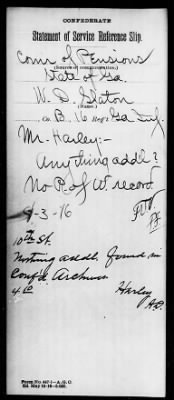 CONFEDERATE
Statement of Service Reference Slip.
Comr of Pensions
(Source of communication.)
State of Ga.
W. D. Slaton
Co. B, 16 Reg't Ga Inf.
Mr. Harley:-
Anything addl?
No P. of W. record
9-3-16
10th St.
Nothing addl. found in
Confed. Archives
Harley
Form No. 447-1—A. G. O.